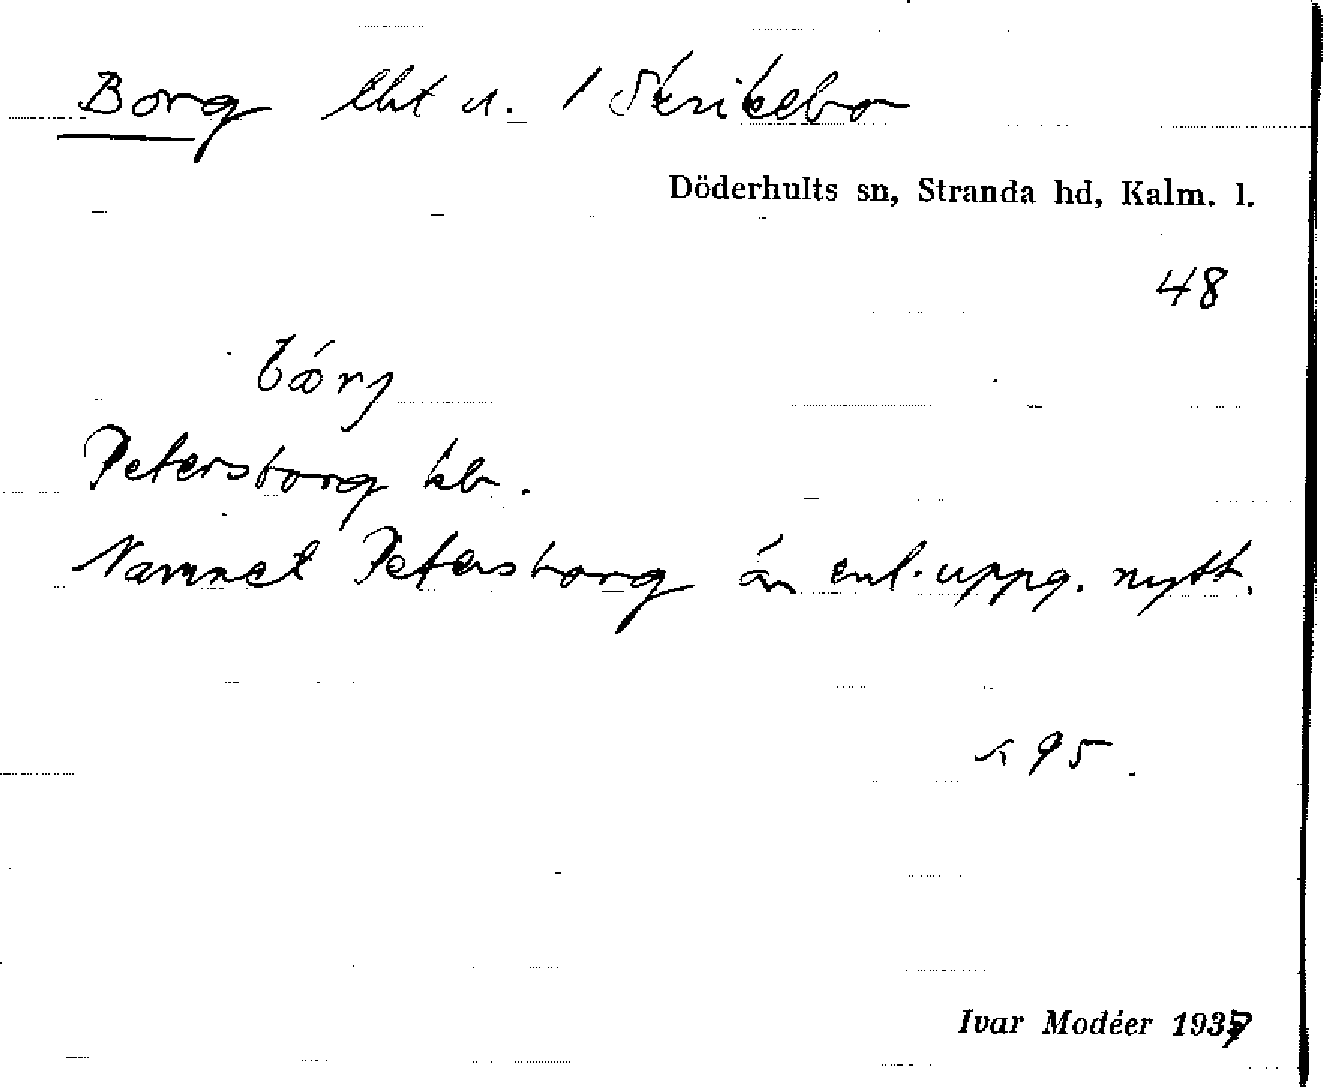 Borg lht u. 1 Skrikebo
Döderhults sn, Stranda hd, Kalm. l.
48
bǽrj
Petersborg kb.
Namnet Petersborg är enl. uppg. nytt.
95.
Ivar Modéer 1937